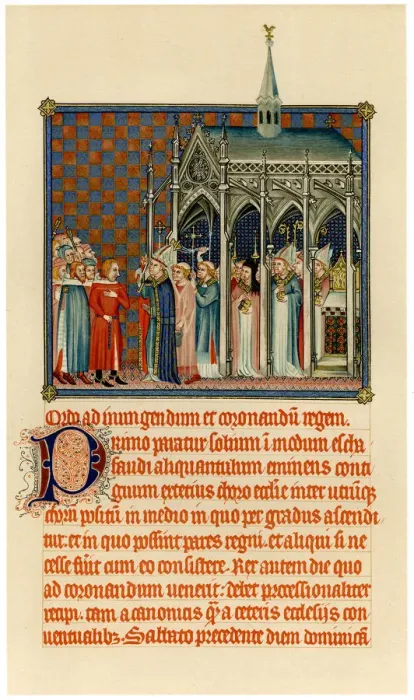 Ordo ad inungendum et coronandū regem.
Primo paratur solium ī modum escha
faudi aliquantulum eminens conti
guum exterius choro ecclīe inter utrūqȝ
chorū positū in medio in quo per gradus ascendi
tur. et in quo possint pares regni. et aliqui si ne
cesse fūit cum eo consistere. Rex autem die quo
ad coronandum uenerit: debet processionaliter
recipi. tam a canonicis qȝ a ceteris ecclesijs con
uentualibȝ. Sabbato precedente diem dominicā